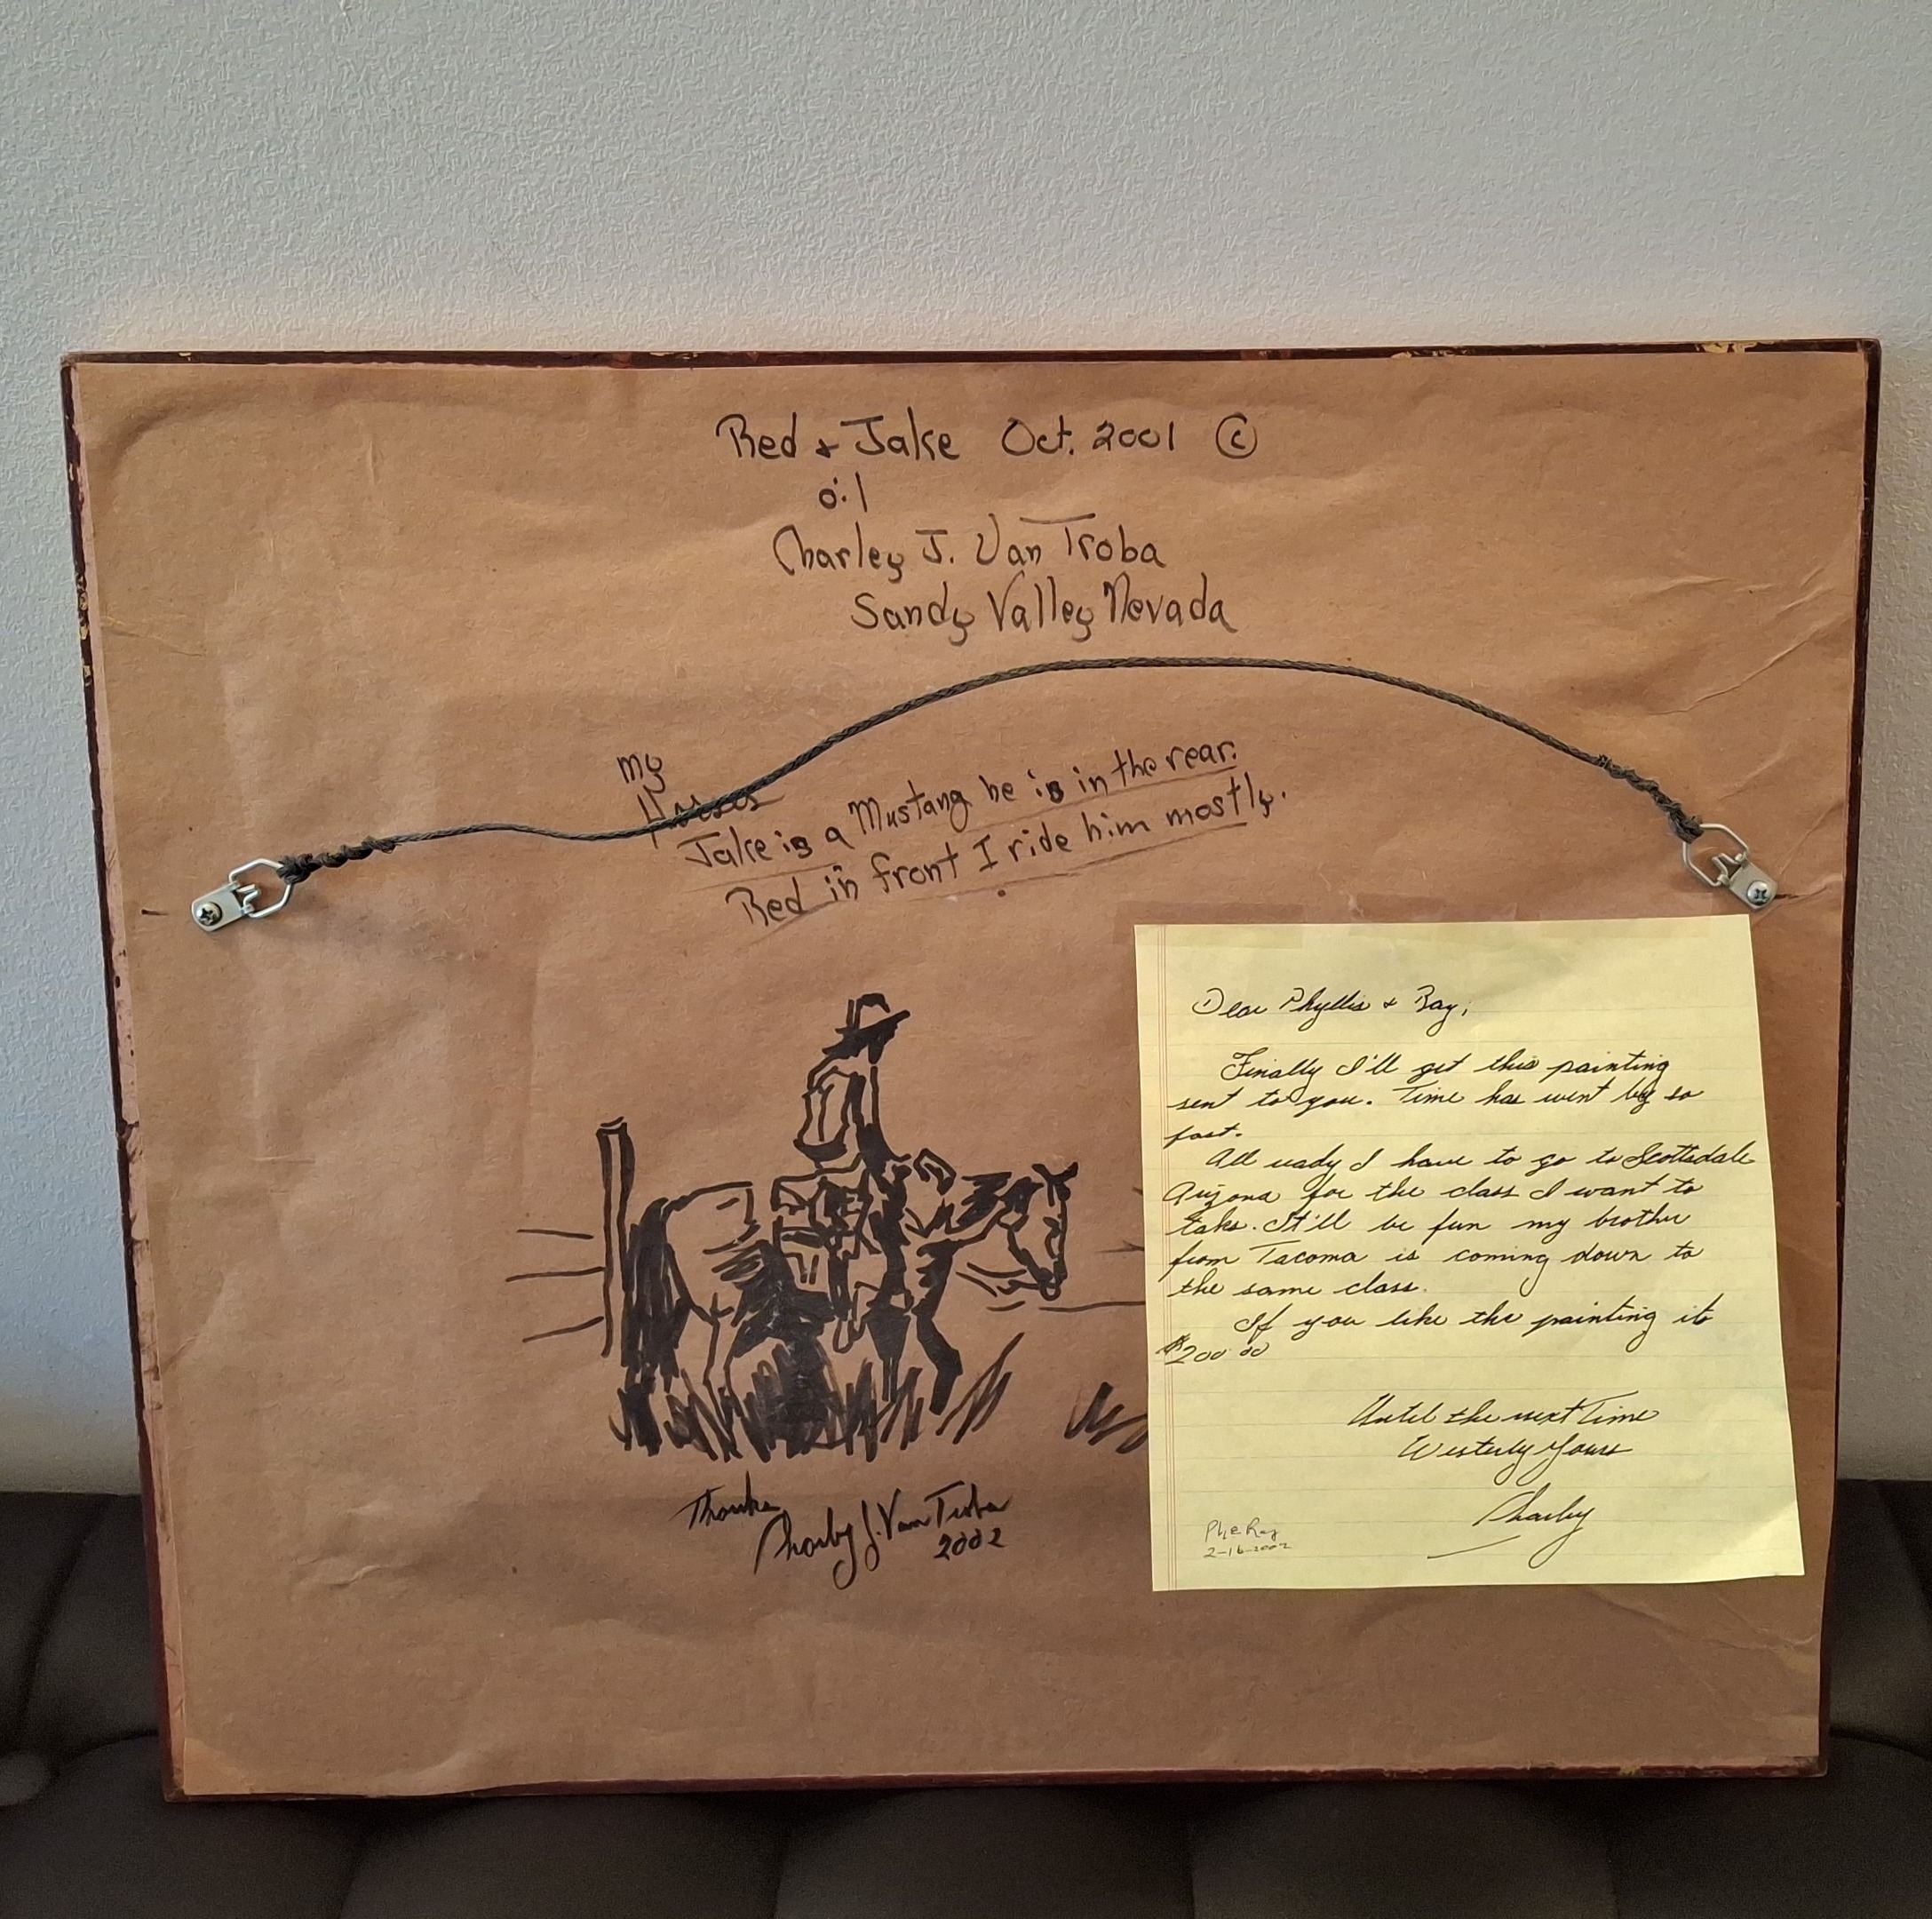 Red + Jake Oct. 2001 ©
oil
Charley J. Van Troba
Sandy Valley Nevada
my
Horses
Jake is a Mustang he is in the rear.
Red in front I ride him mostly.
Thanks
Charley J. Van Troba
2002
Dear Phyllis + Ray;
Finally I'll get this painting
sent to you. Time has went by so
fast.
All ready I have to go to Scottsdale
Arizona for the class I want to
take. It'll be fun my brother
from Tacoma is coming down to
the same class.
If you like the painting its
$200.00
Until the next Time
Westerly Yours
Charley
Ph e Ray
2-16-2002